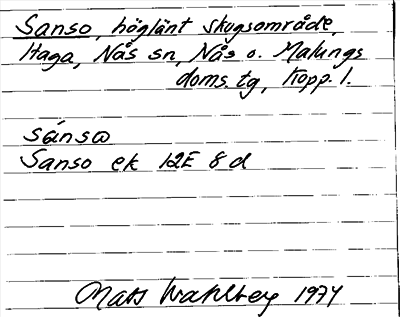 Sanso, höglänt skogsområde,
Haga, Nås sn, Nås o. Malungs
doms. tg, Kopp. l.
sánsω
Sanso ek 12E 8 d
Mats Wahlberg 1974